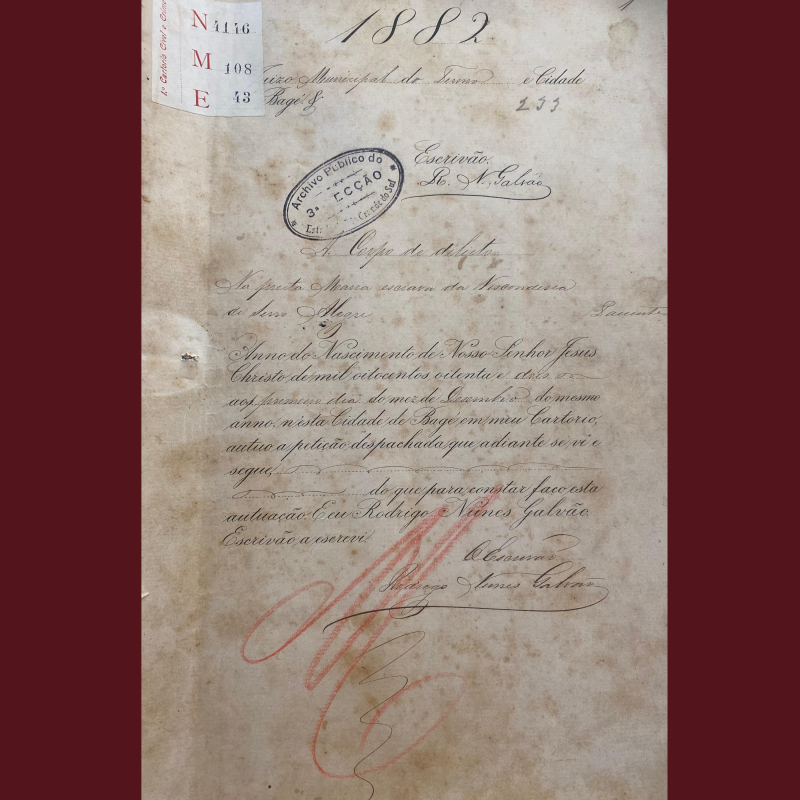 1º Cartorio Civel e Crime
N 4146
M 108
E 43
1882
Juizo Municipal do Termo e Cidade
Bagé &
233
Escrivão
R. N. Galvão
Archivo Publico do
3ª SECÇÃO
Grande do Sul
A. Corpo de delicto
Na preta Maria escrava da Viscondessa
de Serro Alegre
Paciente
Anno do Nascimento de Nosso Senhor Jesus
Christo, de mil oitocentos oitenta e dois
aos primeiro dia do mez de Dezembro do mesmo
anno, n'esta Cidade de Bagé em meu Cartorio,
autuo a petição despachada que adiante se vê e
segue,
do que para constar faço esta
autuação. E eu Rodrigo Nunes Galvão
Escrivão a escrevi.
O Escrivão
Rodrigo Nunes Galvão